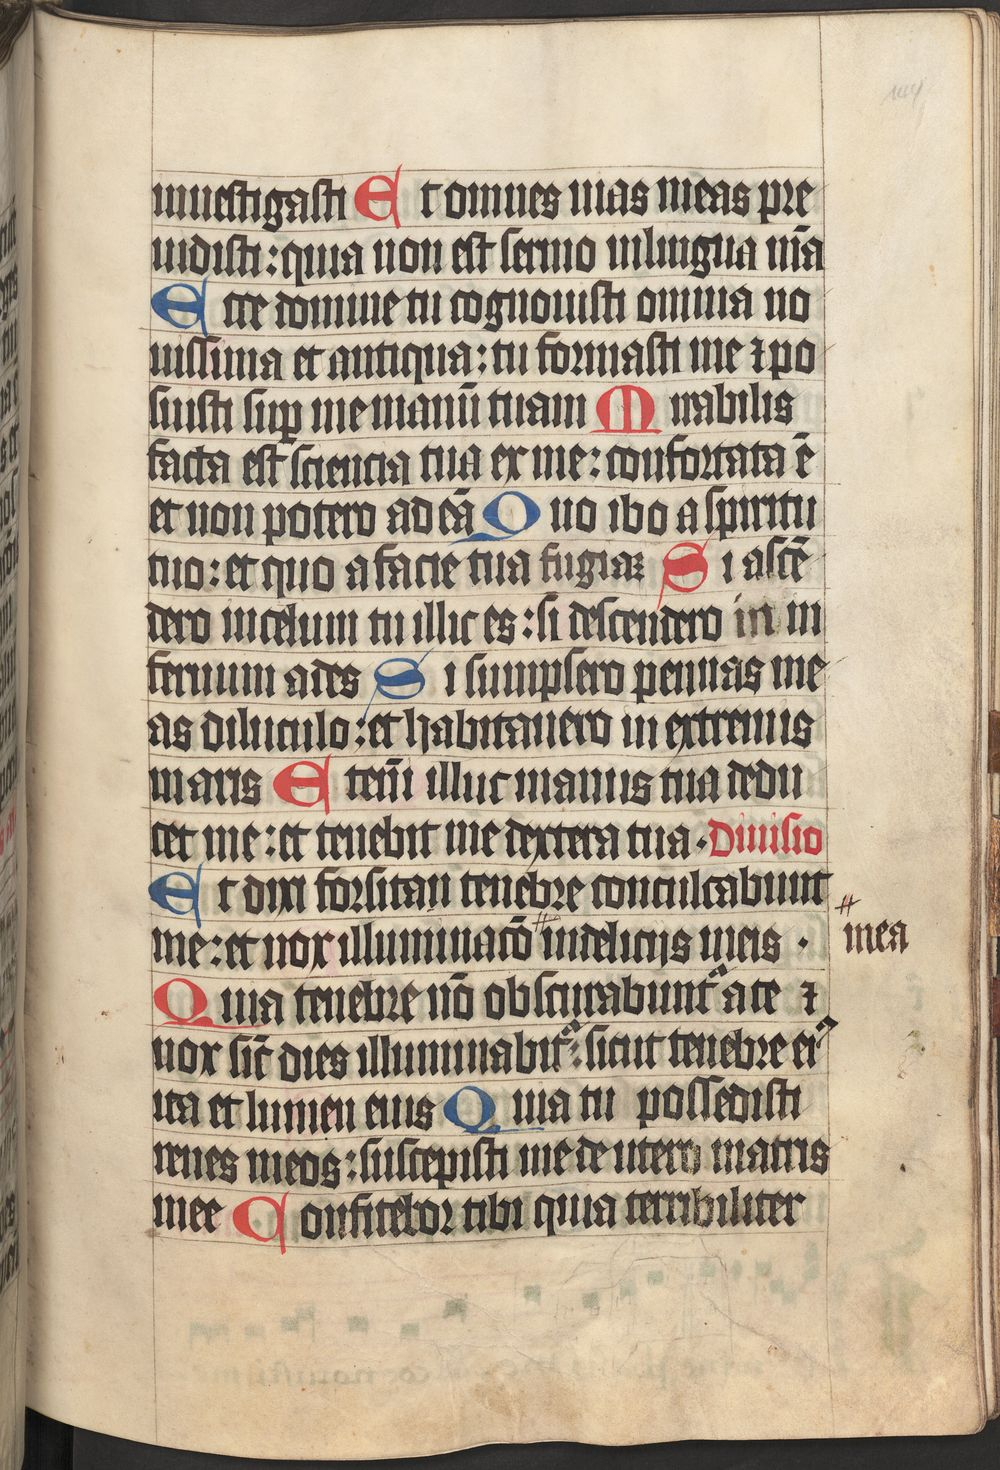 inuestigasti Et omnes uias meas pre
uidisti: quia non est sermo in lingua m̄a
Ecce domine tu cognouisti omnia no
uissima et antiqua: tu formasti me ⁊ po
suisti sup̱ me manū tuam Mirabilis
facta est sciencia tua ex me: confortata ē
et non potero ad eā Quo ibo a spiritu
tuo: et quo a facie tua fugiaꝫ Si ascē
dero in celum tu illic es: si descendero in in
fernum ades Si sumpsero pennas me
as diluculo: et habitauero in extremis
maris Eteni̅ illuc manus tua dedu
cet me: et tenebit me dextera tua. Diuisio
Et dixi forsitan tenebre conculcabunt
me: et nox illuminacō in delicijs meis .
mea
Quia tenebre nō obscurabunt᷑ a te ⁊
nox sic̄ dies illuminabit᷑: sicut tenebre ei᷒
ita et lumen eius Quia tu possedisti
renes meos: suscepisti me de utero matris
mee Confitebor tibi quia terribiliter